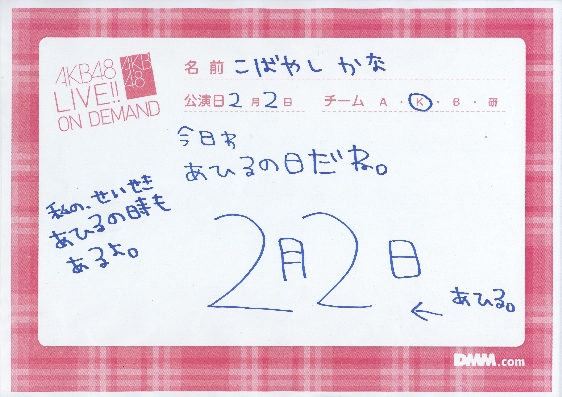 AKB48
LIVE!!
ON DEMAND
AKB
48
名前 こばやし かな
公演日 2月2日 チーム A・K・B・研
今日わ
あひるの日だね。
私の、せいせき
あひるの時も
あるよ。
2月2日
← あひる。
DMM.com